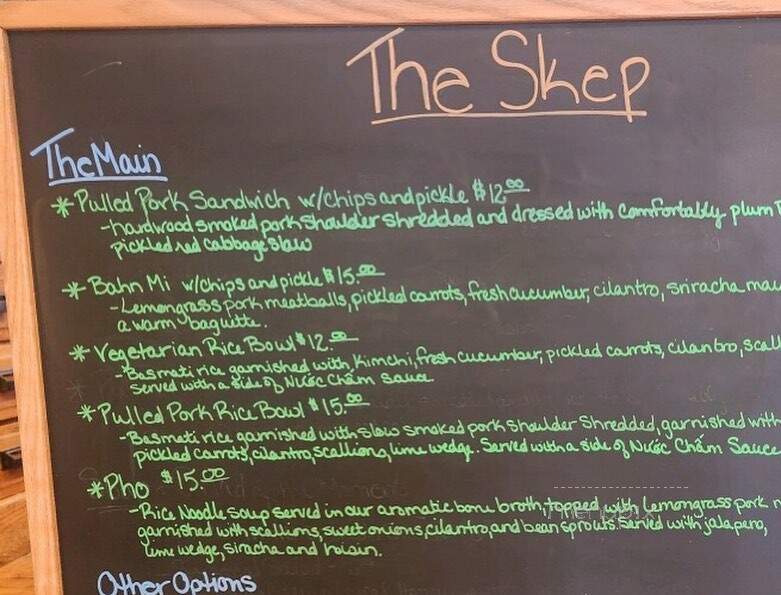 The Skep
The Main
* Pulled Pork Sandwich w/chips and pickle $12.00
- hardwood smoked pork shoulder shredded and dressed with Comfortably plum
pickled red cabbage slaw
* Bahn Mi w/chips and pickle $15.00
- Lemongrass pork meatballs, pickled carrots, fresh cucumber, cilantro, sriracha
a warm baguette.
* Vegetarian Rice Bowl $12.00
- Basmati rice garnished with Kimchi, fresh cucumber, pickled carrots, cilantro,
served with a side of Nước Chấm Sauce
* Pulled Pork Rice Bowl $15.00
- Basmati rice garnished with slow smoked pork shoulder shredded, garnished with
pickled carrots, cilantro, scallions, lime wedge. Served with a side of Nước Chấm Sauce
* Pho $15.00
- Rice Noodle soup served in our aromatic bone broth, topped with Lemongrass pork
garnished with scallions, sweet onions, cilantro, and bean sprouts. Served with jalapeno,
lime wedge, siracha and hoisin.
Other Options